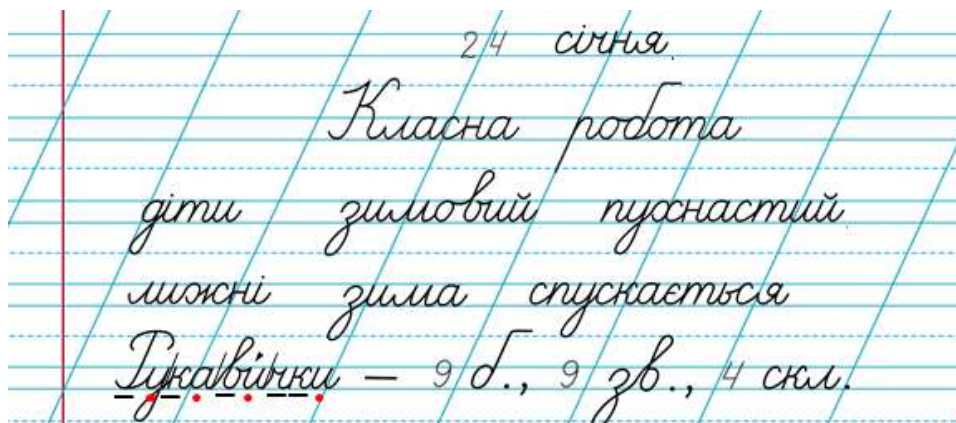 24 січня.
Класна робота
діти зимовий пухнастий
лижні зима спускається
Рукавички – 9 б., 9 зв., 4 скл.